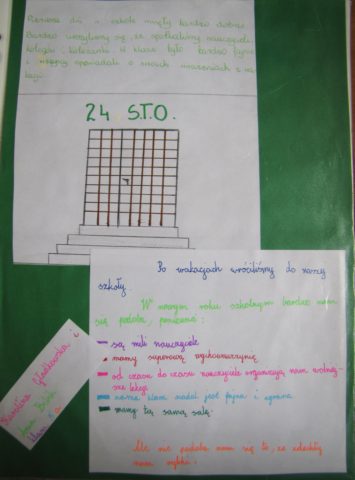 Pierwsze dni w szkole minęły bardzo dobrze.
Bardzo ucieszyliśmy się, że spotkaliśmy nauczycieli,
kolegów i koleżanki. W klasie było bardzo fajnie
i wszyscy opowiadali o swoich wrażeniach z wa-
kacji.
24 S.T.O.
Po wakacjach wróciliśmy do naszej
szkoły.
W nowym roku szkolnym bardzo nam
się podoba, ponieważ:
- są mili nauczyciele
- mamy superową wychowawczynię
- od czasu do czasu nauczyciele organizują nam wolniej-
sze lekcje
- nasza klasa nadal jest fajna i zgrana
- mamy tą samą salę.
Ale nie podoba nam się to, że zdechły
nam rybki.
Klaudia
i
Klasa 6 a